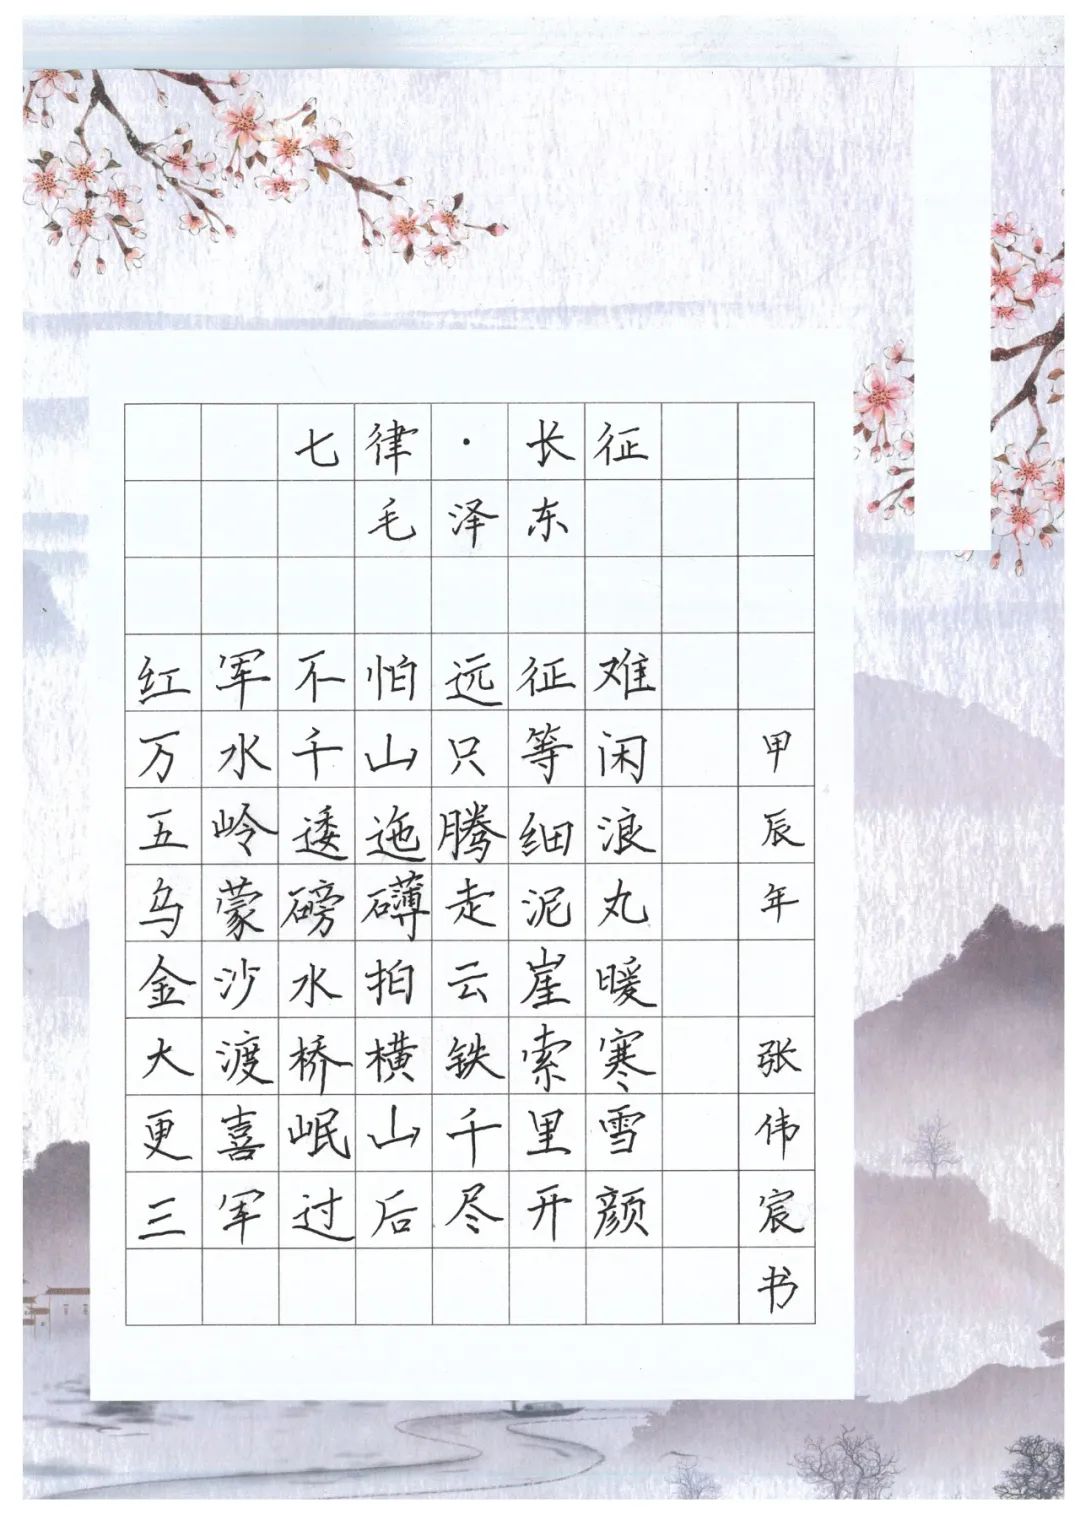 七律·长征
毛泽东
红军不怕远征难
万水千山只等闲
五岭逶迤腾细浪
乌蒙磅礴走泥丸
金沙水拍云崖暖
大渡桥横铁索寒
更喜岷山千里雪
三军过后尽开颜
甲辰年 张伟宸书